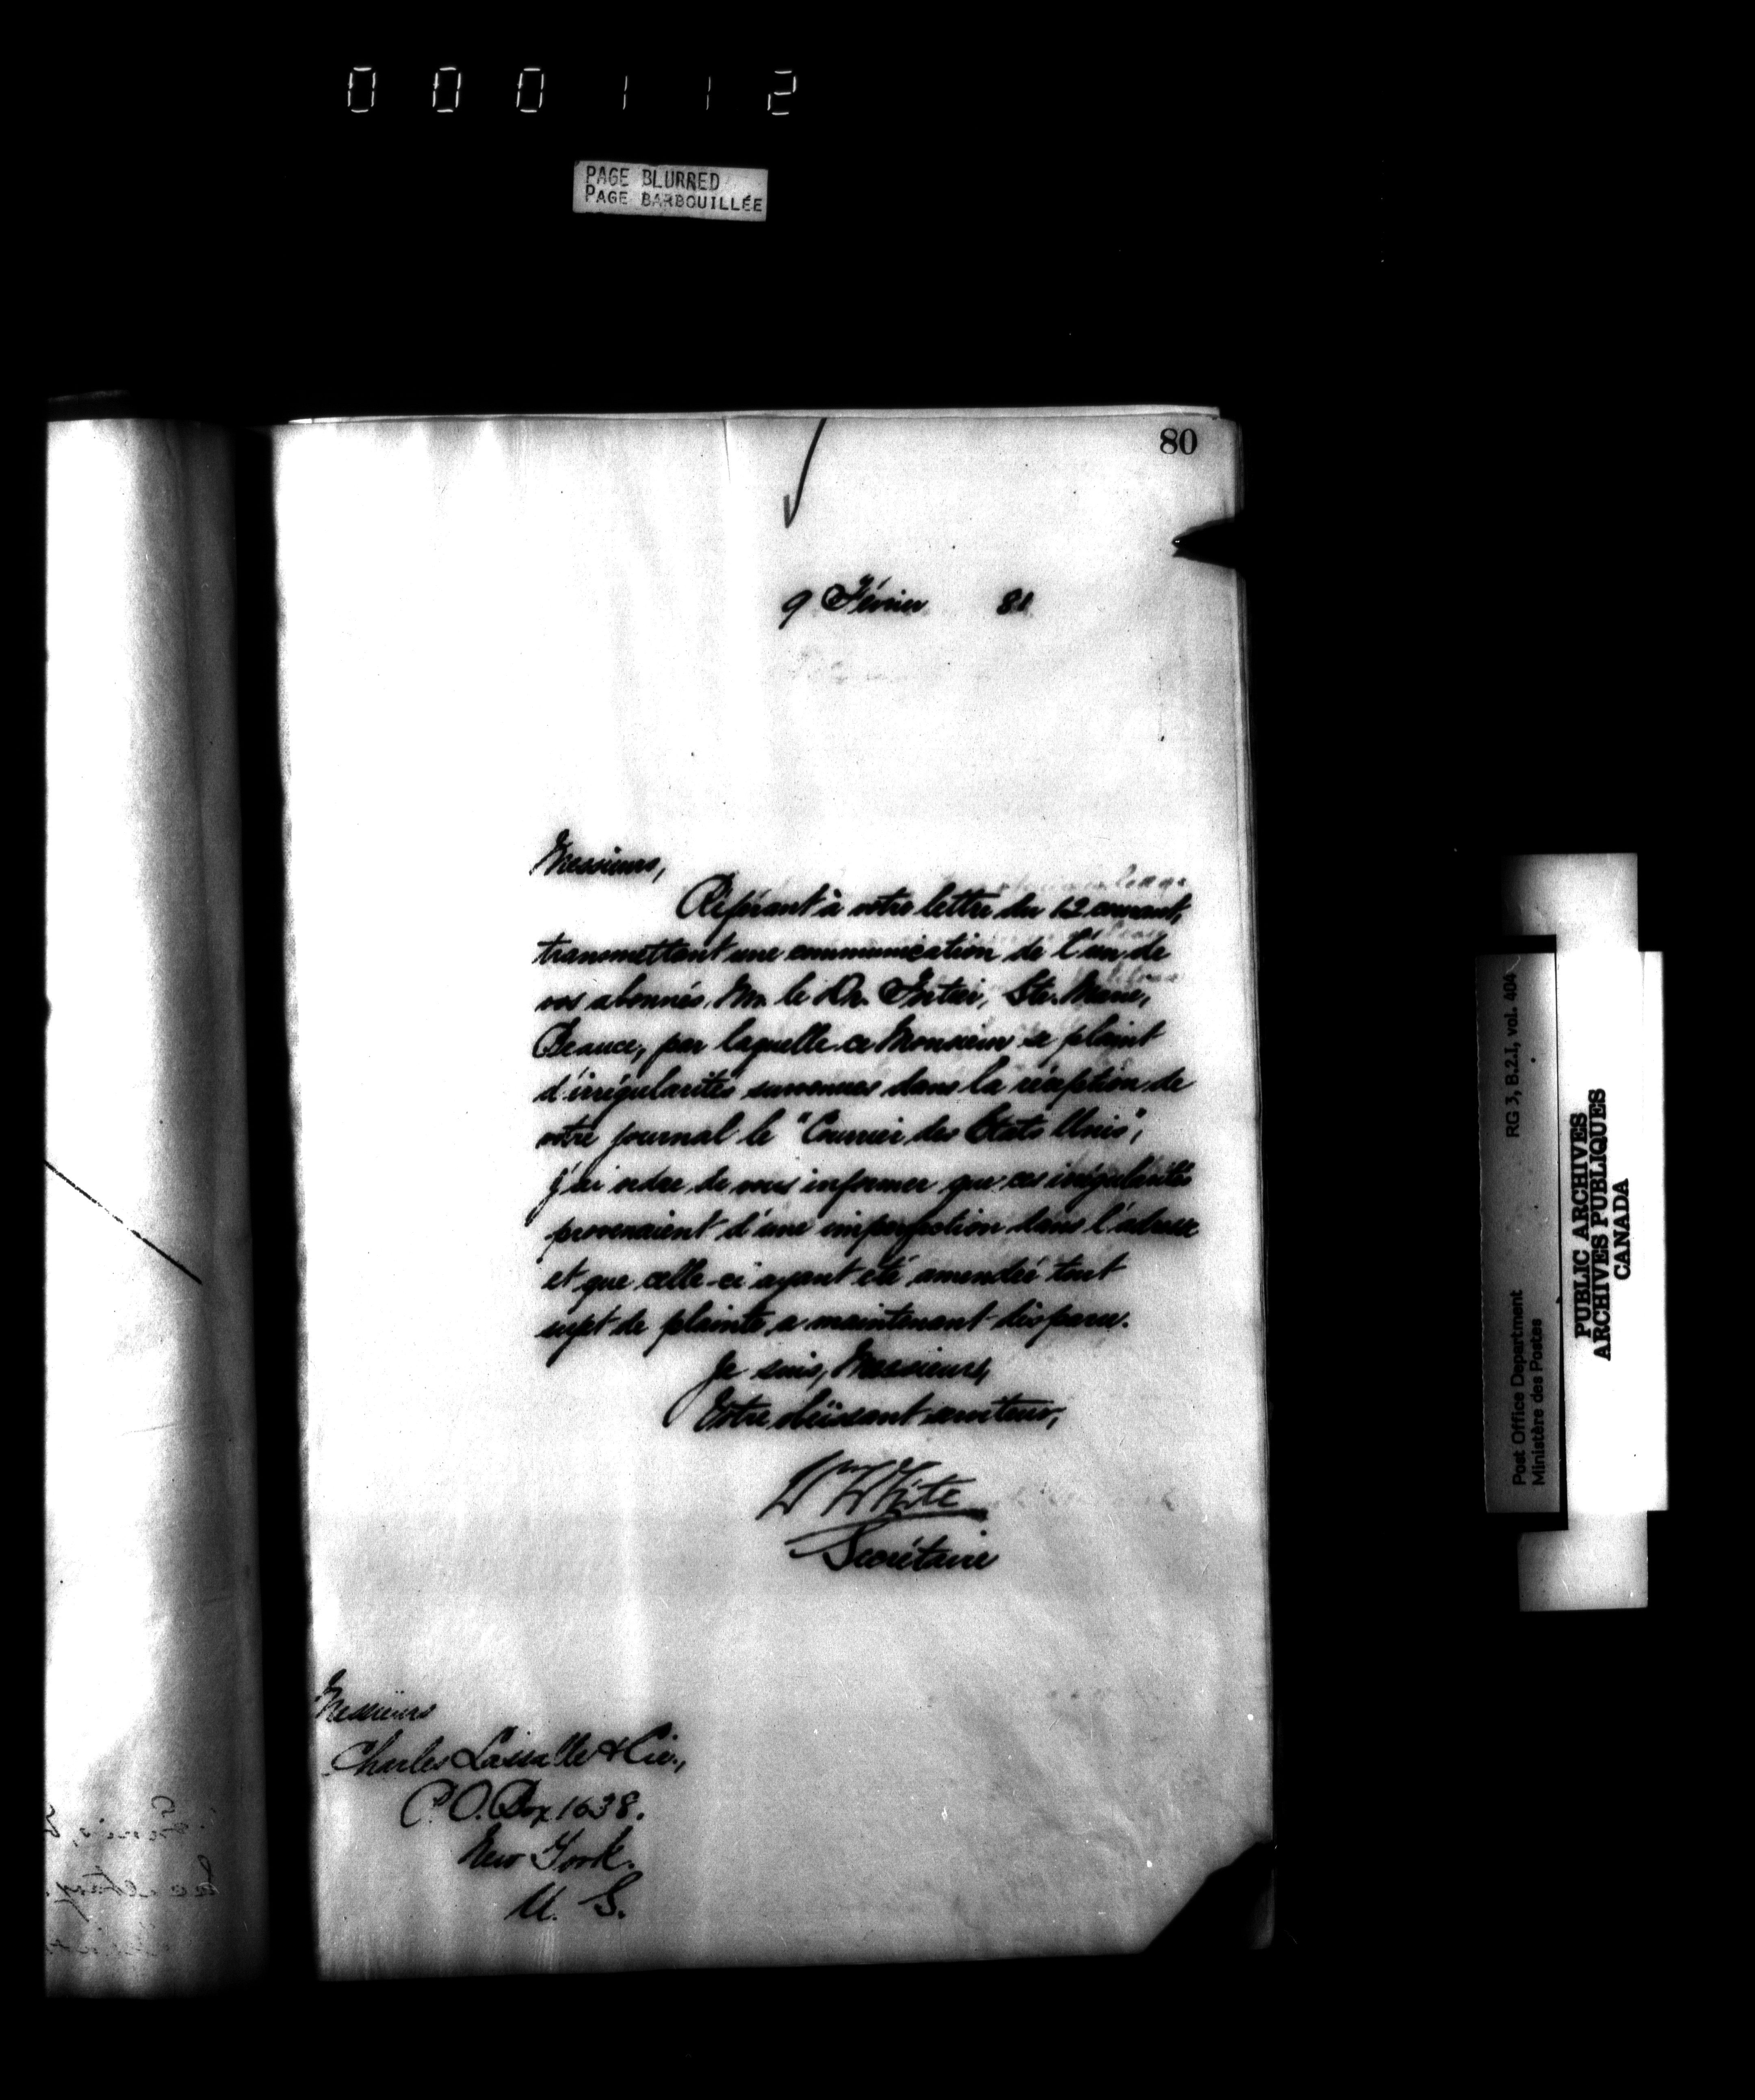 000112
PAGE BLURRED
PAGE BARBOUILLÉE
80
9 Février 81
Messieurs,
Référant à votre lettre du 12 courant,
transmettant une communication de l'un de
vos abonnés, Mr. le Dr. Fortier, Ste. Marie,
Beauce, par laquelle ce Monsieur se plaint
d'irrégularités survenues dans la réception de
votre journal le "Courrier des Etats Unis",
j'ai ordre de vous informer que ces irrégularités
provenaient d'une imperfection dans l'adresse
et que celle-ci ayant été amendée tout
sujet de plainte a maintenant disparu.
Je suis, Messieurs,
Votre obéissant serviteur,
Wm White
Secrétaire
Messieurs
Charles Lassalle & Cie.,
P.O. Box 1638.
New York.
U. S.
RG 3, B.2.I, vol. 404
Post Office Department
Ministère des Postes
PUBLIC ARCHIVES
ARCHIVES PUBLIQUES
CANADA